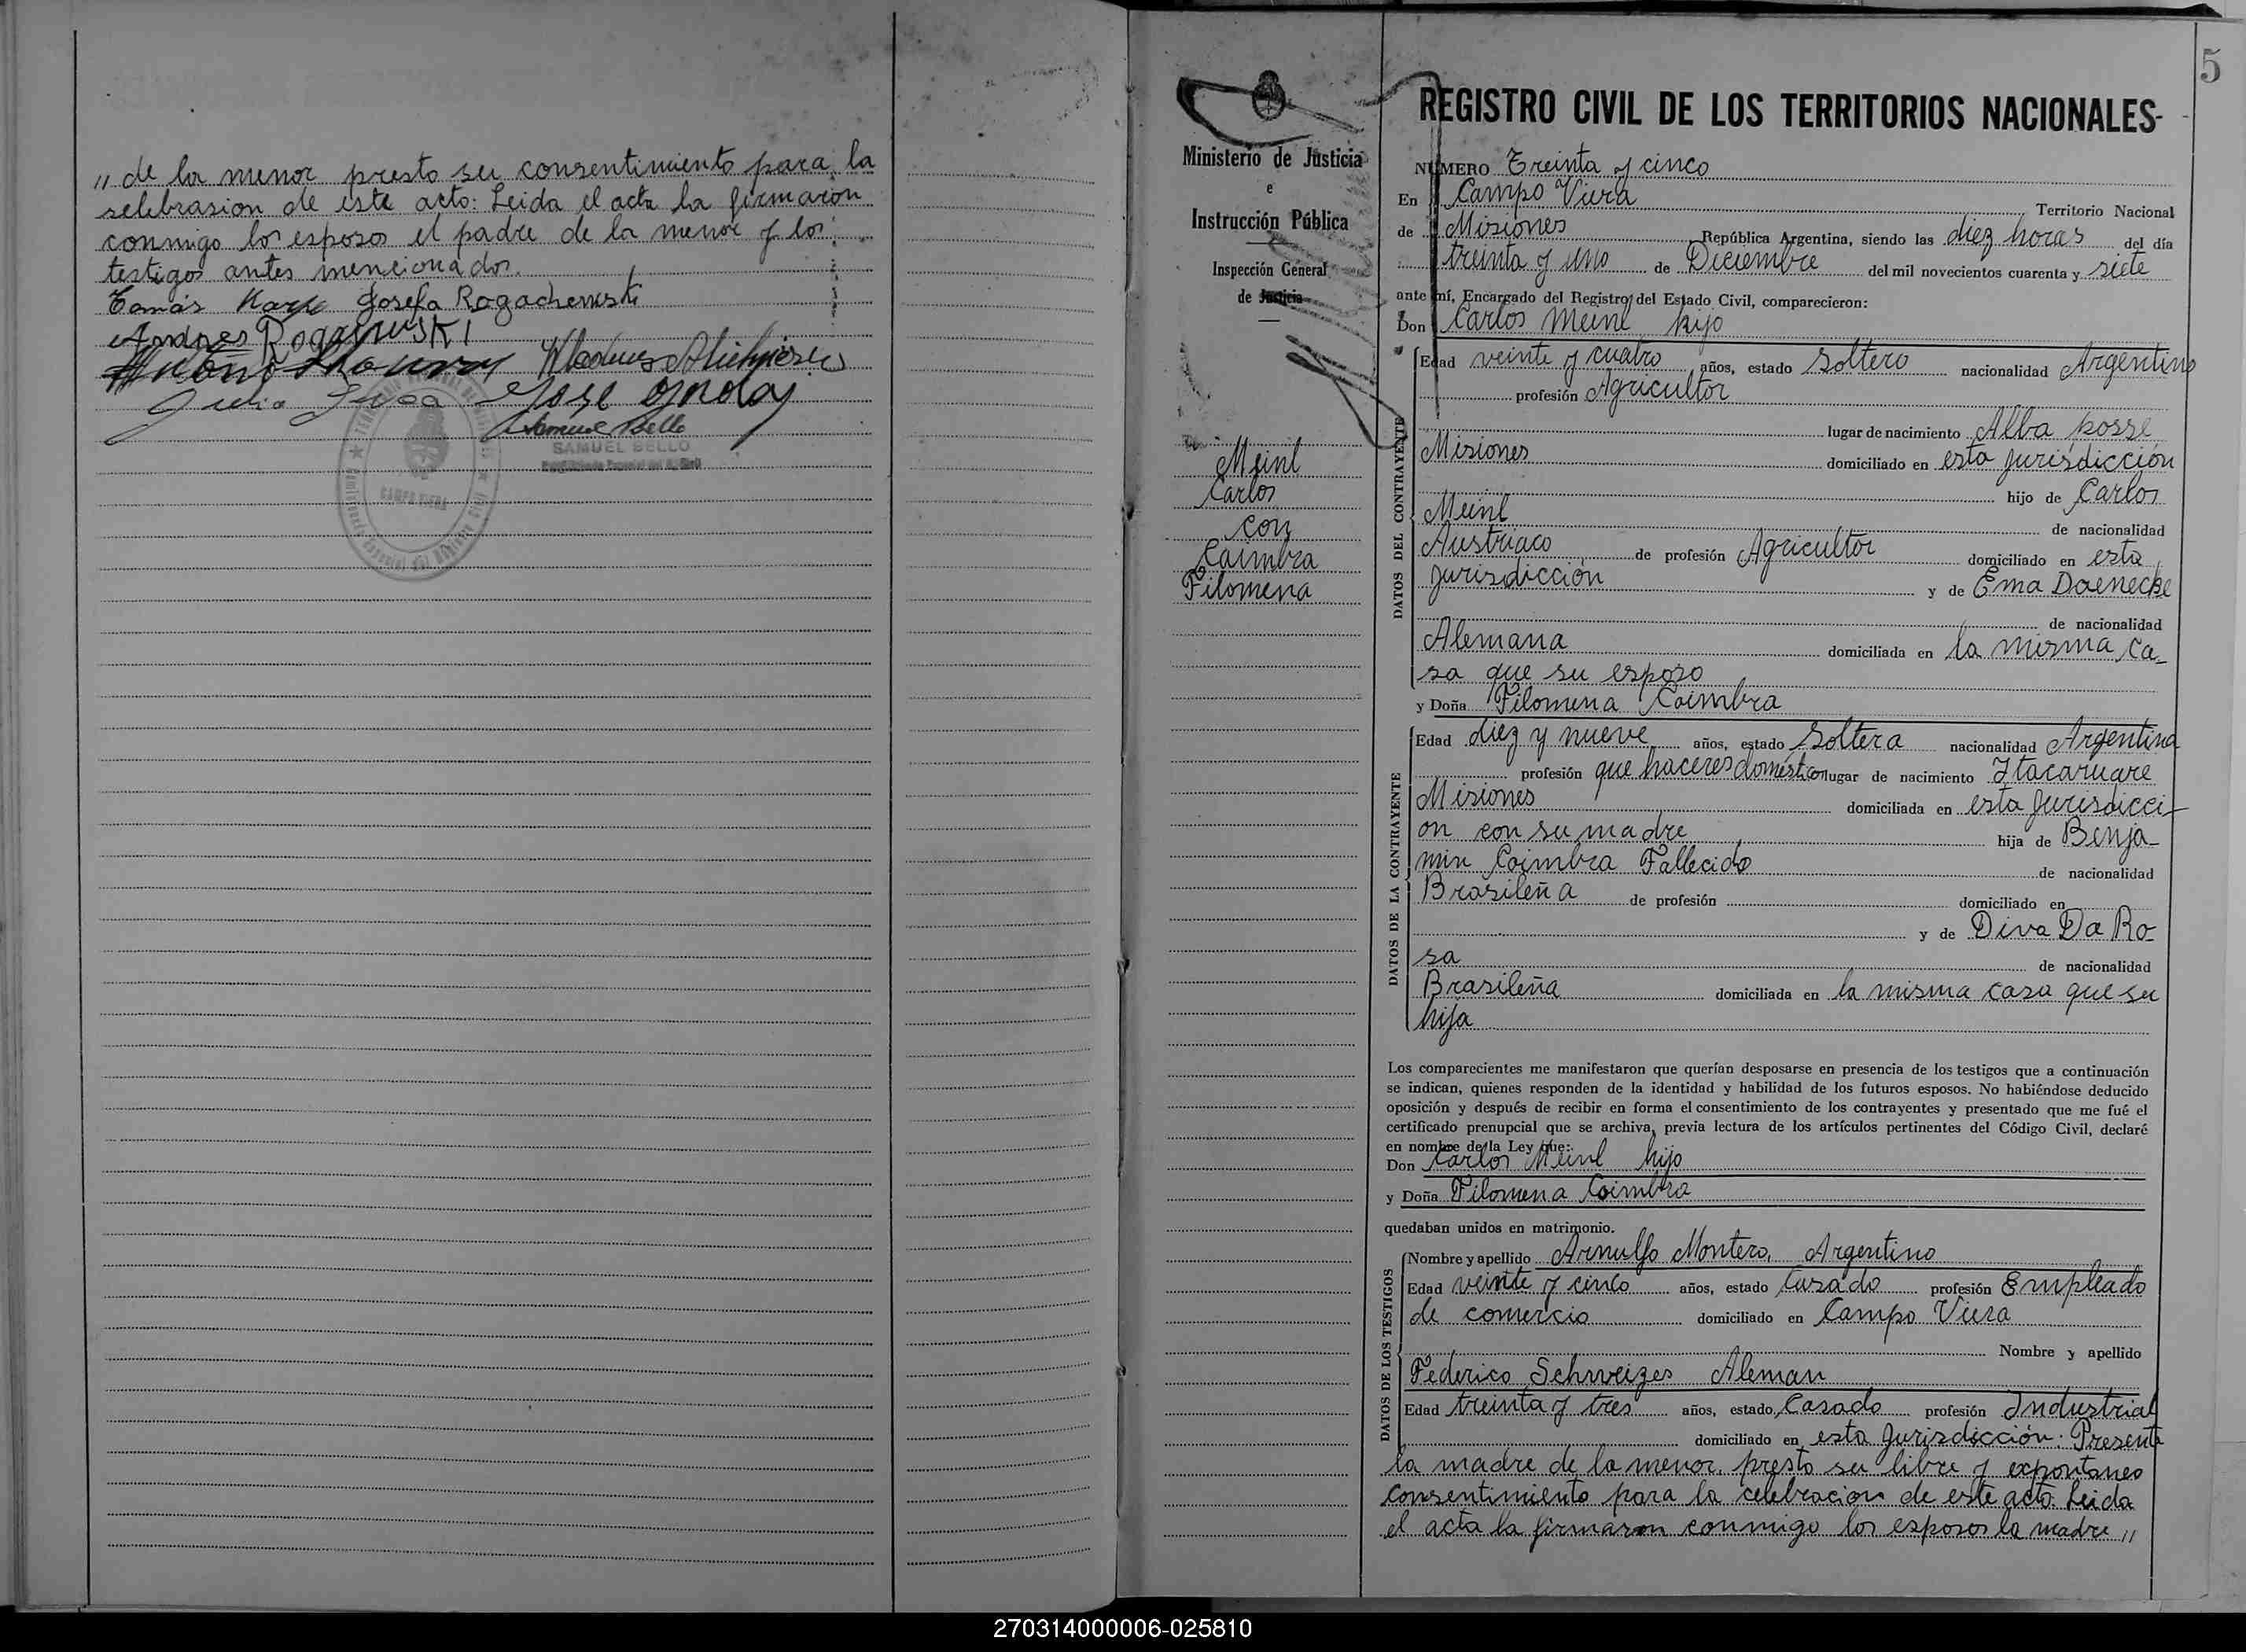 ,, de la menor presto su consentimiento para la
selebrasion de este acto: Leida el acta la firmaron
conmigo los esposos el padre de la menor y los
testigos antes mencionados.
Tomás Josefa Rogachewski
Andres
Julio José
Samuel Bello
SAMUEL BELLO
CAMPO VIERA
5
Ministerio de Justicia
e
Instrucción Pública
Inspección General
de Justicia
Meinl
Carlos
con
Coimbra
Filomena
REGISTRO CIVIL DE LOS TERRITORIOS NACIONALES
NÚMERO Treinta y cinco
En Campo Viera Territorio Nacional
de Misiones República Argentina, siendo las diez horas del día
treinta y uno de Deciembre del mil novecientos cuarenta y siete
ante mí, Encargado del Registro del Estado Civil, comparecieron:
Don Carlos Meinl hijo
DATOS DEL CONTRAYENTE
Edad veinte y cuatro años, estado Soltero nacionalidad Argentino
profesión Agricultor
lugar de nacimiento Alba posse
Misiones domiciliado en esta jurisdicción
hijo de Carlos
Meinl de nacionalidad
Austriaco de profesión Agricultor domiciliado en esta
jurisdicción y de Ema Daenecke
de nacionalidad
Alemana domiciliada en la misma ca-
sa que su esposo
y Doña Filomena Coimbra
DATOS DE LA CONTRAYENTE
Edad diez y nueve años, estado Soltera nacionalidad Argentina
profesión que haceres doméstico lugar de nacimiento Itacaruare
Misiones domiciliada en esta jurisdicci-
on con su madre hija de Benja-
min Coimbra Fallecido de nacionalidad
Brasileña de profesión domiciliado en
y de Diva Da Ro-
sa de nacionalidad
Brasileña domiciliada en la misma casa que su
hija
Los comparecientes me manifestaron que querían desposarse en presencia de los testigos que a continuación
se indican, quienes responden de la identidad y habilidad de los futuros esposos. No habiéndose deducido
oposición y después de recibir en forma el consentimiento de los contrayentes y presentado que me fué el
certificado prenupcial que se archiva, previa lectura de los artículos pertinentes del Código Civil, declaré
en nombre de la Ley que:
Don Carlos Meinl hijo
y Doña Filomena Coimbra
quedaban unidos en matrimonio.
DATOS DE LOS TESTIGOS
Nombre y apellido Arnulfo Montero, Argentino
Edad veinte y cinco años, estado Casado profesión Empleado
de comercio domiciliado en Campo Viera
Nombre y apellido
Federico Schweizer Aleman
Edad treinta y tres años, estado Casado profesión Industrial
domiciliado en esta jurisdicción: Presente
la madre de la menor. presto su libre y expontaneo
consentimiento para la celebracion de este acto. Leida
el acta la firmaron conmigo los esposos la madre ,,
270314000006-025810